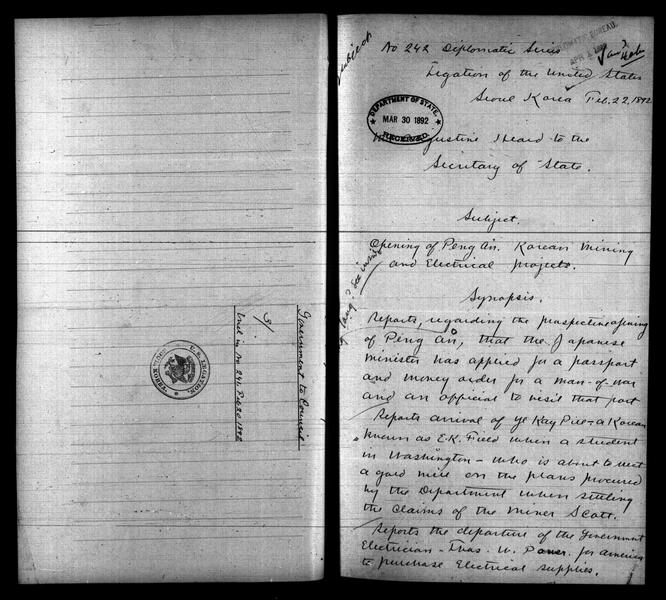 Government to Council
3/
Encl in No 241. Feb 20 1892
U.S. LEGATION.
Subject
No 242 Diplomatic Series
Legation of the United States
Seoul Korea Feb. 22, 1892
DEPARTMENT OF STATE.
MAR 30 1892
RECEIVED.
Augustine Heard to the
Secretary of State.
Subject.
Opening of Peng An. Korean Mining
and Electrical projects.
Synopsis.
Reports, regarding the prospective opening
of Peng An, that the Japanese
minister has applied for a passport
and money order for a man-of-war
and an official to visit that port
Reports arrival of Ye Kay Pil a Korean
known as E.K. Field when a student
in Washington - who is about to erect
a gold mill on the plans procured
by the Department when settling
the claims of the miner Scott.
Reports the departure of the Government
Electrician - Thos. W. Power. for America
to purchase Electrical supplies.